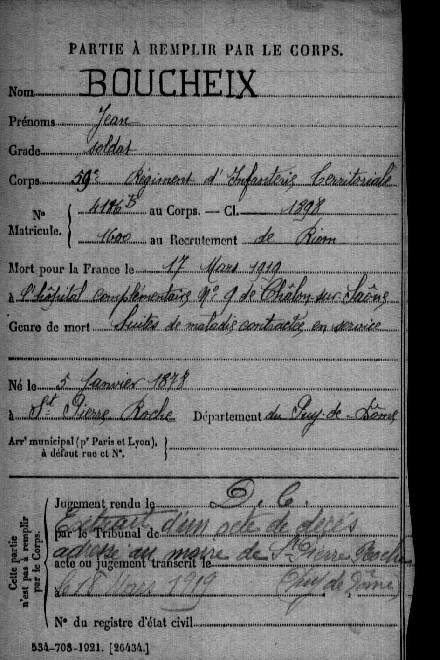 PARTIE À REMPLIR PAR LE CORPS.
Nom BOUCHEIX
Prénoms Jean
Grade soldat
Corps 59e Régiment d'Infanterie Territoriale
No Matricule. { 4186 B au Corps. — Cl. 1898
1600 au Recrutement de Riom
Mort pour la France le 17 Mars 1919
à l'hôpital complémentaire No 9 de Châlon-sur-Saône
Genre de mort Suites de maladie contractée en service
Né le 5 Janvier 1878
à St Pierre Roche Département du Puy-de-Dôme
Arrt municipal (pr Paris et Lyon),
à défaut rue et No.
Cette partie
n'est pas à remplir
par le Corps.
Jugement rendu le D. C.
Extrait d'un acte de décès
par le Tribunal de
adressé au maire de St Pierre Roche
acte ou jugement transcrit le
le 18 Mars 1919 (Puy de Dôme)
No du registre d'état civil
534-708-1921. [26434.]